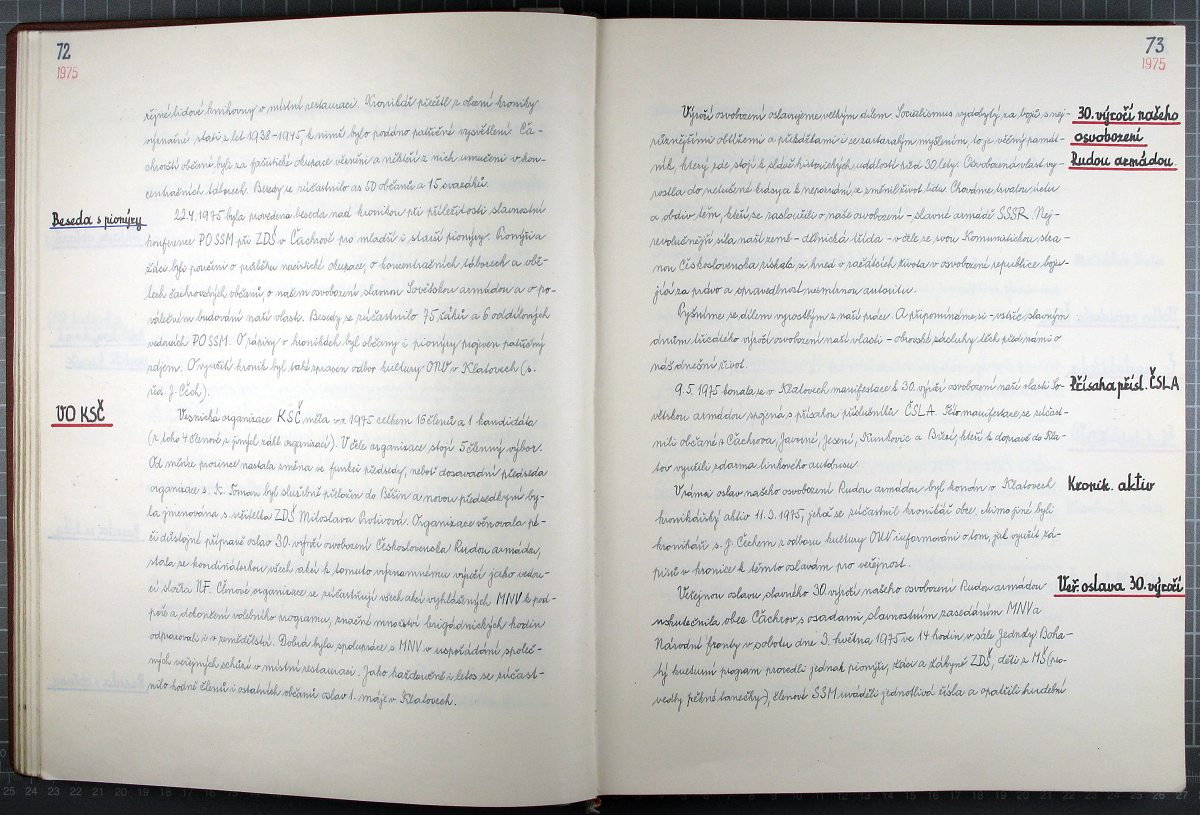 72
1975
řejné lidové knihovny v místní restauraci. Kronikář přečetl z obecní kroniky
význačné stati z let 1938-1945, k nimž bylo podáno patřičné vysvětlení. Ča-
chrovští občané byli za fašistické okupace vězněni a někteří z nich umučeni v kon-
centračních táborech. Besedy se zúčastnilo as 50 občanů a 15 svazáků.
Beseda s pionýry
22.4.1975 byla provedena beseda nad kronikou při příležitosti slavnostní
konference POSSM při ZDŠ v Čachrově pro mladší i starší pionýry. Pionýři a
žáci byli poučeni o průběhu nacistické okupace, o koncentračních táborech a obě-
tech čachrovských občanů, o našem osvobození slavnou Sovětskou armádou a o po-
válečném budování naší vlasti. Besedy se zúčastnilo 75 žáků a 6 oddílových
vedoucích POSSM. O zápisy v kronikách byl občany i pionýry projeven patřičný
zájem. O využití kronik byl také zpraven odbor kultury ONV v Klatovech (s.
řed. J. Čech).
VO KSČ
Vesnická organizace KSČ měla v r. 1975 celkem 16 členů a 1 kandidáta
(z toho 4 členové z jiných zákl. organizací). V čele organizace stojí 5členný výbor.
Od měsíce prosince nastala změna ve funkci předsedy, neboť dosavadní předseda
organizace s. K. Toman byl služebně přeložen do Běšin a novou předsedkyní by-
la jmenována s. učitelka ZDŠ Miloslava Protivová. Organizace věnovala pé-
či důstojné přípravě oslav 30. výročí osvobození Československa Rudou armádou,
stala se koordinátorkou všech akcí k tomuto významnému výročí jako vedou-
cí složka NF. Členové organizace se zúčastňují všech akcí vyhlášených MNV k pod-
poře a dokončení volebního programu, značné množství brigádnických hodin
odpracovali i v zemědělství. Dobrá byla spolupráce s MNV v uspořádání společ-
ných veřejných schůzí v místní restauraci. Jako každoročně i letos se zúčast-
nilo hodně členů i ostatních občanů oslav 1. máje v Klatovech.
73
1975
30. výročí našeho
osvobození
Rudou armádou
Výročí osvobození oslavujeme velkým dílem. Socialismus vydobytý za bojů s nej-
různějšími obtížemi a překážkami i se zastaralým myšlením, to je věčný památ-
ník, který zde stojí k slávě historických událostí před 30 lety. Osvobozená vlast vy-
rostla do netušené krásy a k nepoznání se změnil život lidu. Chováme trvalou úctu
a obdiv těm, kteří se zasloužili o naše osvobození - slavné armádě SSSR. Nej-
revolučnější síla naší země - dělnická třída - v čele se svou Komunistickou stra-
nou Československa získala si hned v začátcích života v osvobozené republice boju-
jící za právo a spravedlnost nesmírnou autoritu.
Pyšníme se dílem vyrostlým z naší práce. A připomínáme si - vstříc slavným
dnům třicátého výročí osvobození naší vlasti - obrovské zásluhy těch před námi o
náš dnešní život.
Přísaha přísl. ČSLA
9.5.1975 konala se v Klatovech manifestace k 30. výročí osvobození naší vlasti So-
větskou armádou spojená s přísahou příslušníků ČSLA. Této manifestace se zúčast-
nili občané z Čachrova, Javorné, Jesení, Kunkovic a Bíží, kteří k dopravě do Kla-
tov využili zdarma linkového autobusu.
Kronik. aktiv
V rámci oslav našeho osvobození Rudou armádou byl konán v Klatovech
kronikářský aktiv 11.3.1975, jehož se zúčastnil kronikář obce. Mimo jiné byli
kronikáři s. J. Čechem z odboru kultury ONV informováni o tom, jak využít zá-
pisů v kronice k těmto oslavám pro veřejnost.
Veř. oslava 30. výročí
Veřejnou oslavu slavného 30. výročí našeho osvobození Rudou armádou
uskutečnila obec Čachrov s osadami slavnostním zasedáním MNV a
Národní fronty v sobotu dne 3. května 1975 ve 14 hodin v sále Jednoty. Boha-
tý kulturní program provedli jednak pionýři, žáci a žákyně ZDŠ, děti z MŠ (pro-
vedly pěkné tanečky), členové SSM uváděli jednotlivá čísla a opatřili hudební